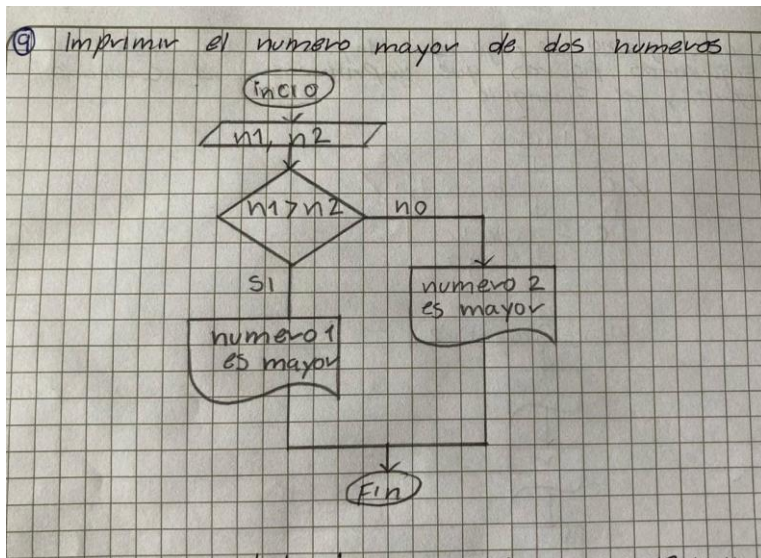 9 Imprimir el numero mayor de dos numeros
incio
n1, n2
n1>n2
no
SI
numero 2
es mayor
numero 1
es mayor
Fin